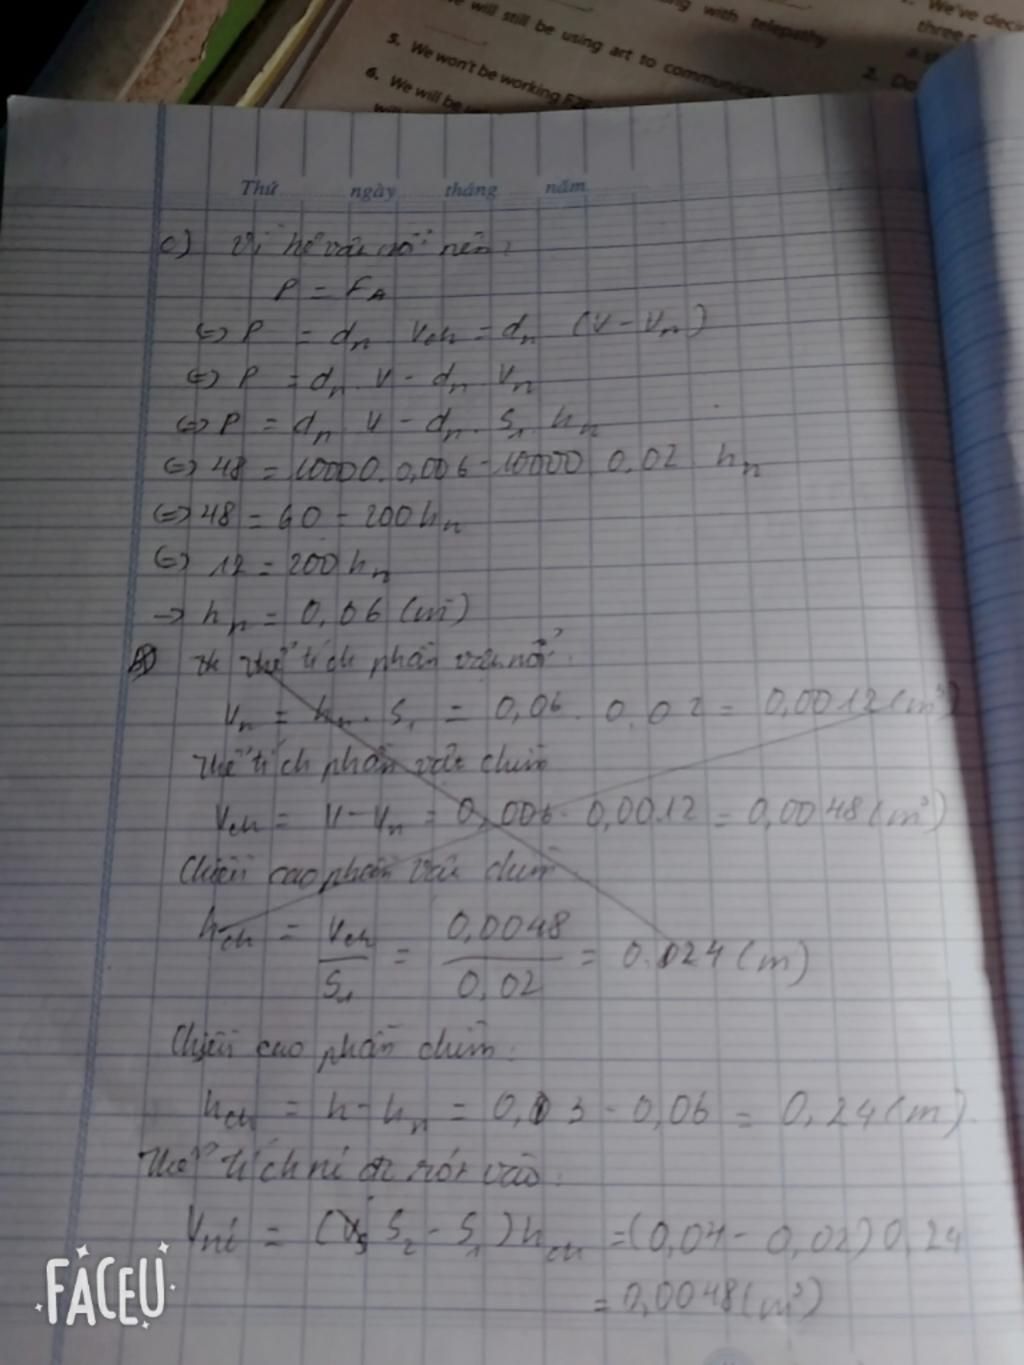 will still be using art to communicate
ng with telepathy
We've deci
three
5. We won't be working
6. We will be
2. Do
Thứ ngày tháng năm
c) Vì hệ vật nổi nên:
P = FA
<=> P = dn Vch = dn (V - Vn)
<=> P = dn. V - dn. Vn
<=> P = dn V - dn. S1 hn
<=> 48 = 10000. 0,006 - 10000 0,02 hn
<=> 48 = 60 - 200hn
<=> 12 = 200 hn
-> hn = 0,06 (m)
thể tích phần vật nổi:
Vn = hn. S1 = 0,06. 0,02 = 0,0012 (m³)
thể tích phần vật chìm
Vch = V - Vn = 0,006 - 0,0012 = 0,0048 (m³)
Chiều cao phần vật chìm
hch = Vch / S1 = 0,0048 / 0,02 = 0.024 (m)
Chiều cao phần chìm:
hch = h - hn = 0,3 - 0,06 = 0,24 (m)
thể tích rót vào:
(S2 - S1) hch = (0,04 - 0,02) 0,24
= 0,0048 (m³)
FACEU